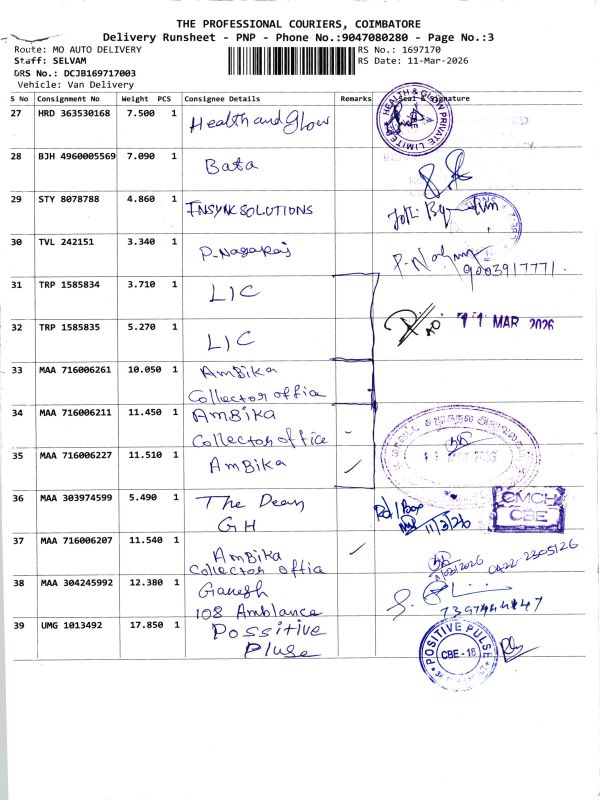 THE PROFESSIONAL COURIERS, COIMBATORE
Delivery Runsheet - PNP - Phone No.:9047080280 - Page No.:3
Route: MO AUTO DELIVERY
RS No.: 1697170
Staff: SELVAM
RS Date: 11-Mar-2026
DRS No.: DCJB169717003
Vehicle: Van Delivery
S No Consignment No Weight PCS Consignee Details Remarks Seal & Signature
27 HRD 363530168 7.500 1 Health and Glow
HEALTH & GLOW PRIVATE LIMITED
28 BJH 4960005569 7.090 1 Bata
29 STY 8078788 4.860 1 INSYNC SOLUTIONS
30 TVL 242151 3.340 1 P. Nagaraj
9003917771.
31 TRP 1585834 3.710 1 LIC
32 TRP 1585835 5.270 1 LIC
11 MAR 2026
33 MAA 716006261 10.050 1 AmBika
Collector office
34 MAA 716006211 11.450 1 AmBika
Collector office
35 MAA 716006227 11.510 1 AmBika
36 MAA 303974599 5.490 1 The Dean
GH
11/3/26
CMCH
CBE
37 MAA 716006207 11.540 1 AmBika
Collector offia
0422-2305126
38 MAA 304245992 12.380 1 Ganesh
108 Amblance
39 UMG 1013492 17.850 1 Possitive
Pluse
POSITIVE PULSE
CBE - 18